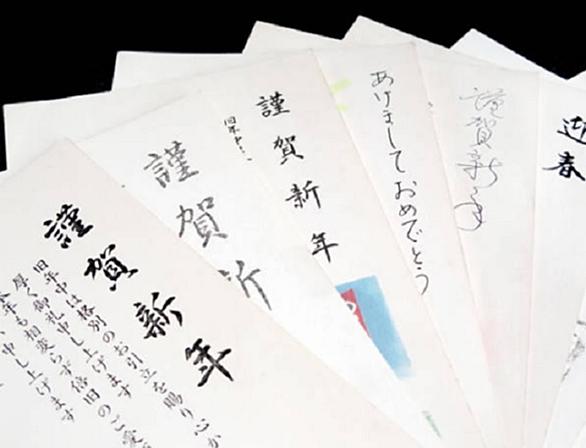 謹賀新年
旧年中は格別のお引立を賜り心か
厚く御礼申し上げます
本年も相変らず倍旧のご愛
申し上げます
謹賀新
謹賀新年
旧年中
あけましておめでとう
謹賀新年
迎春